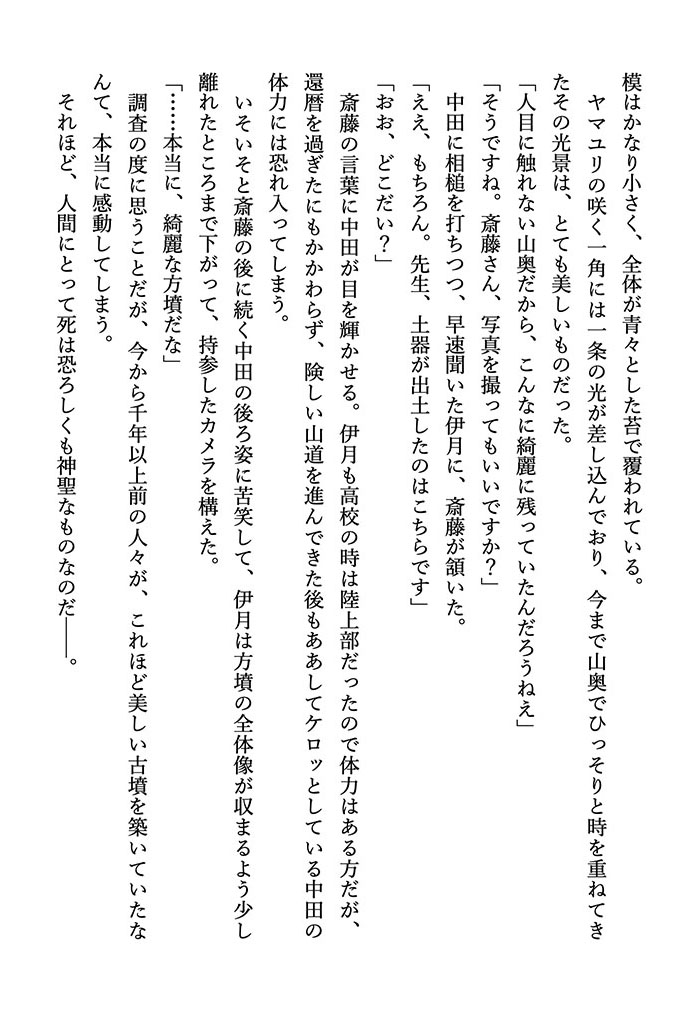 模はかなり小さく、全体が青々とした苔で覆われている。
　ヤマユリの咲く一角には一条の光が差し込んでおり、今まで山奥でひっそりと時を重ねてき
たその光景は、とても美しいものだった。
「人目に触れない山奥だから、こんなに綺麗に残っていたんだろうねえ」
「そうですね。斎藤さん、写真を撮ってもいいですか？」
　中田に相槌を打ちつつ、早速聞いた伊月に、斎藤が頷いた。
「ええ、もちろん。先生、土器が出土したのはこちらです」
「おお、どこだい？」
　斎藤の言葉に中田が目を輝かせる。伊月も高校の時は陸上部だったので体力はある方だが、
還暦を過ぎたにもかかわらず、険しい山道を進んできた後もああしてケロッとしている中田の
体力には恐れ入ってしまう。
　いそいそと斎藤の後に続く中田の後ろ姿に苦笑して、伊月は方墳の全体像が収まるよう少し
離れたところまで下がって、持参したカメラを構えた。
「……本当に、綺麗な方墳だな」
　調査の度に思うことだが、今から千年以上前の人々が、これほど美しい古墳を築いていたな
んて、本当に感動してしまう。
　それほど、人間にとって死は恐ろしくも神聖なものなのだ――。